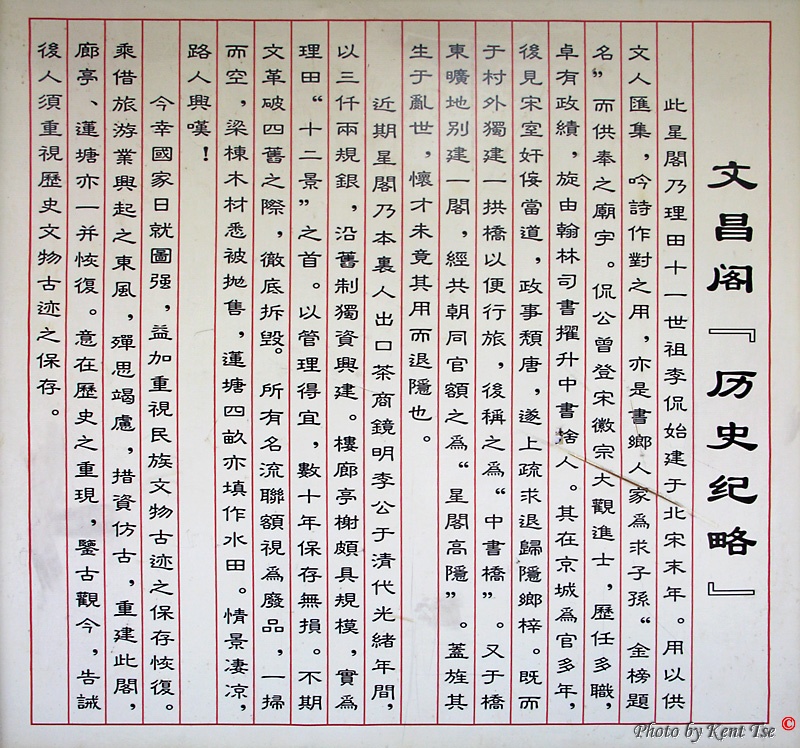 文昌阁『历史纪略』
此星閣乃理田十一世祖李侃始建于北宋末年。用以供
文人匯集，吟詩作對之用，亦是書鄉人家為求子孫“金榜題
名”而供奉之廟宇。侃公曾登宋徽宗大觀進士，歷任多職，
卓有政績，旋由翰林司書擢升中書捨人。其在京城為官多年，
後見宋室奸佞當道，政事頹唐，遂上疏求退歸隱鄉梓。既而
于村外獨建一拱橋以便行旅，後稱之為“中書橋”。又于橋
東曠地別建一閣，經共朝同官額之為“星閣高隱”。蓋旌其
生于亂世，懷才未竟其用而退隱也。
近期星閣乃本裏人出口茶商鏡明李公于清代光緒年間，
以三仟兩規銀，沿舊制獨資興建。樓廊亭榭頗具規模，實為
理田“十二景”之首。以管理得宜，數十年保存無損。不期
文革破四舊之際，徹底拆毀。所有名流聯額視為廢品，一掃
而空，梁棟木材悉被拋售，蓮塘四畝亦填作水田。情景凄凉，
路人興嘆！
今幸國家日就圖强，益加重視民族文物古迹之保存恢復。
乘借旅游業興起之東風，殫思竭慮，措資仿古，重建此閣，
廊亭、蓮塘亦一并恢復。意在歷史之重現，鑒古觀今，告誡
後人須重視歷史文物古迹之保存。
Photo by Kent Tse ©